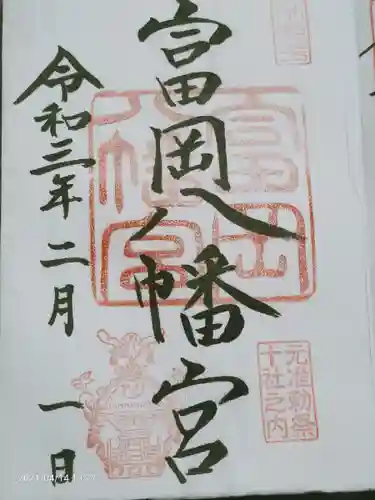 富岡八幡宮
令和三年二月一日
富岡八幡宮
元准勅祭
十社之内